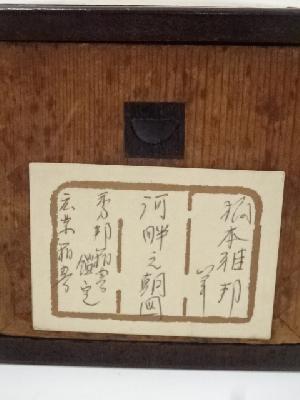 橋本雅邦
筆
河畔之朝図
秀邦箱書
鑑定
広業箱書